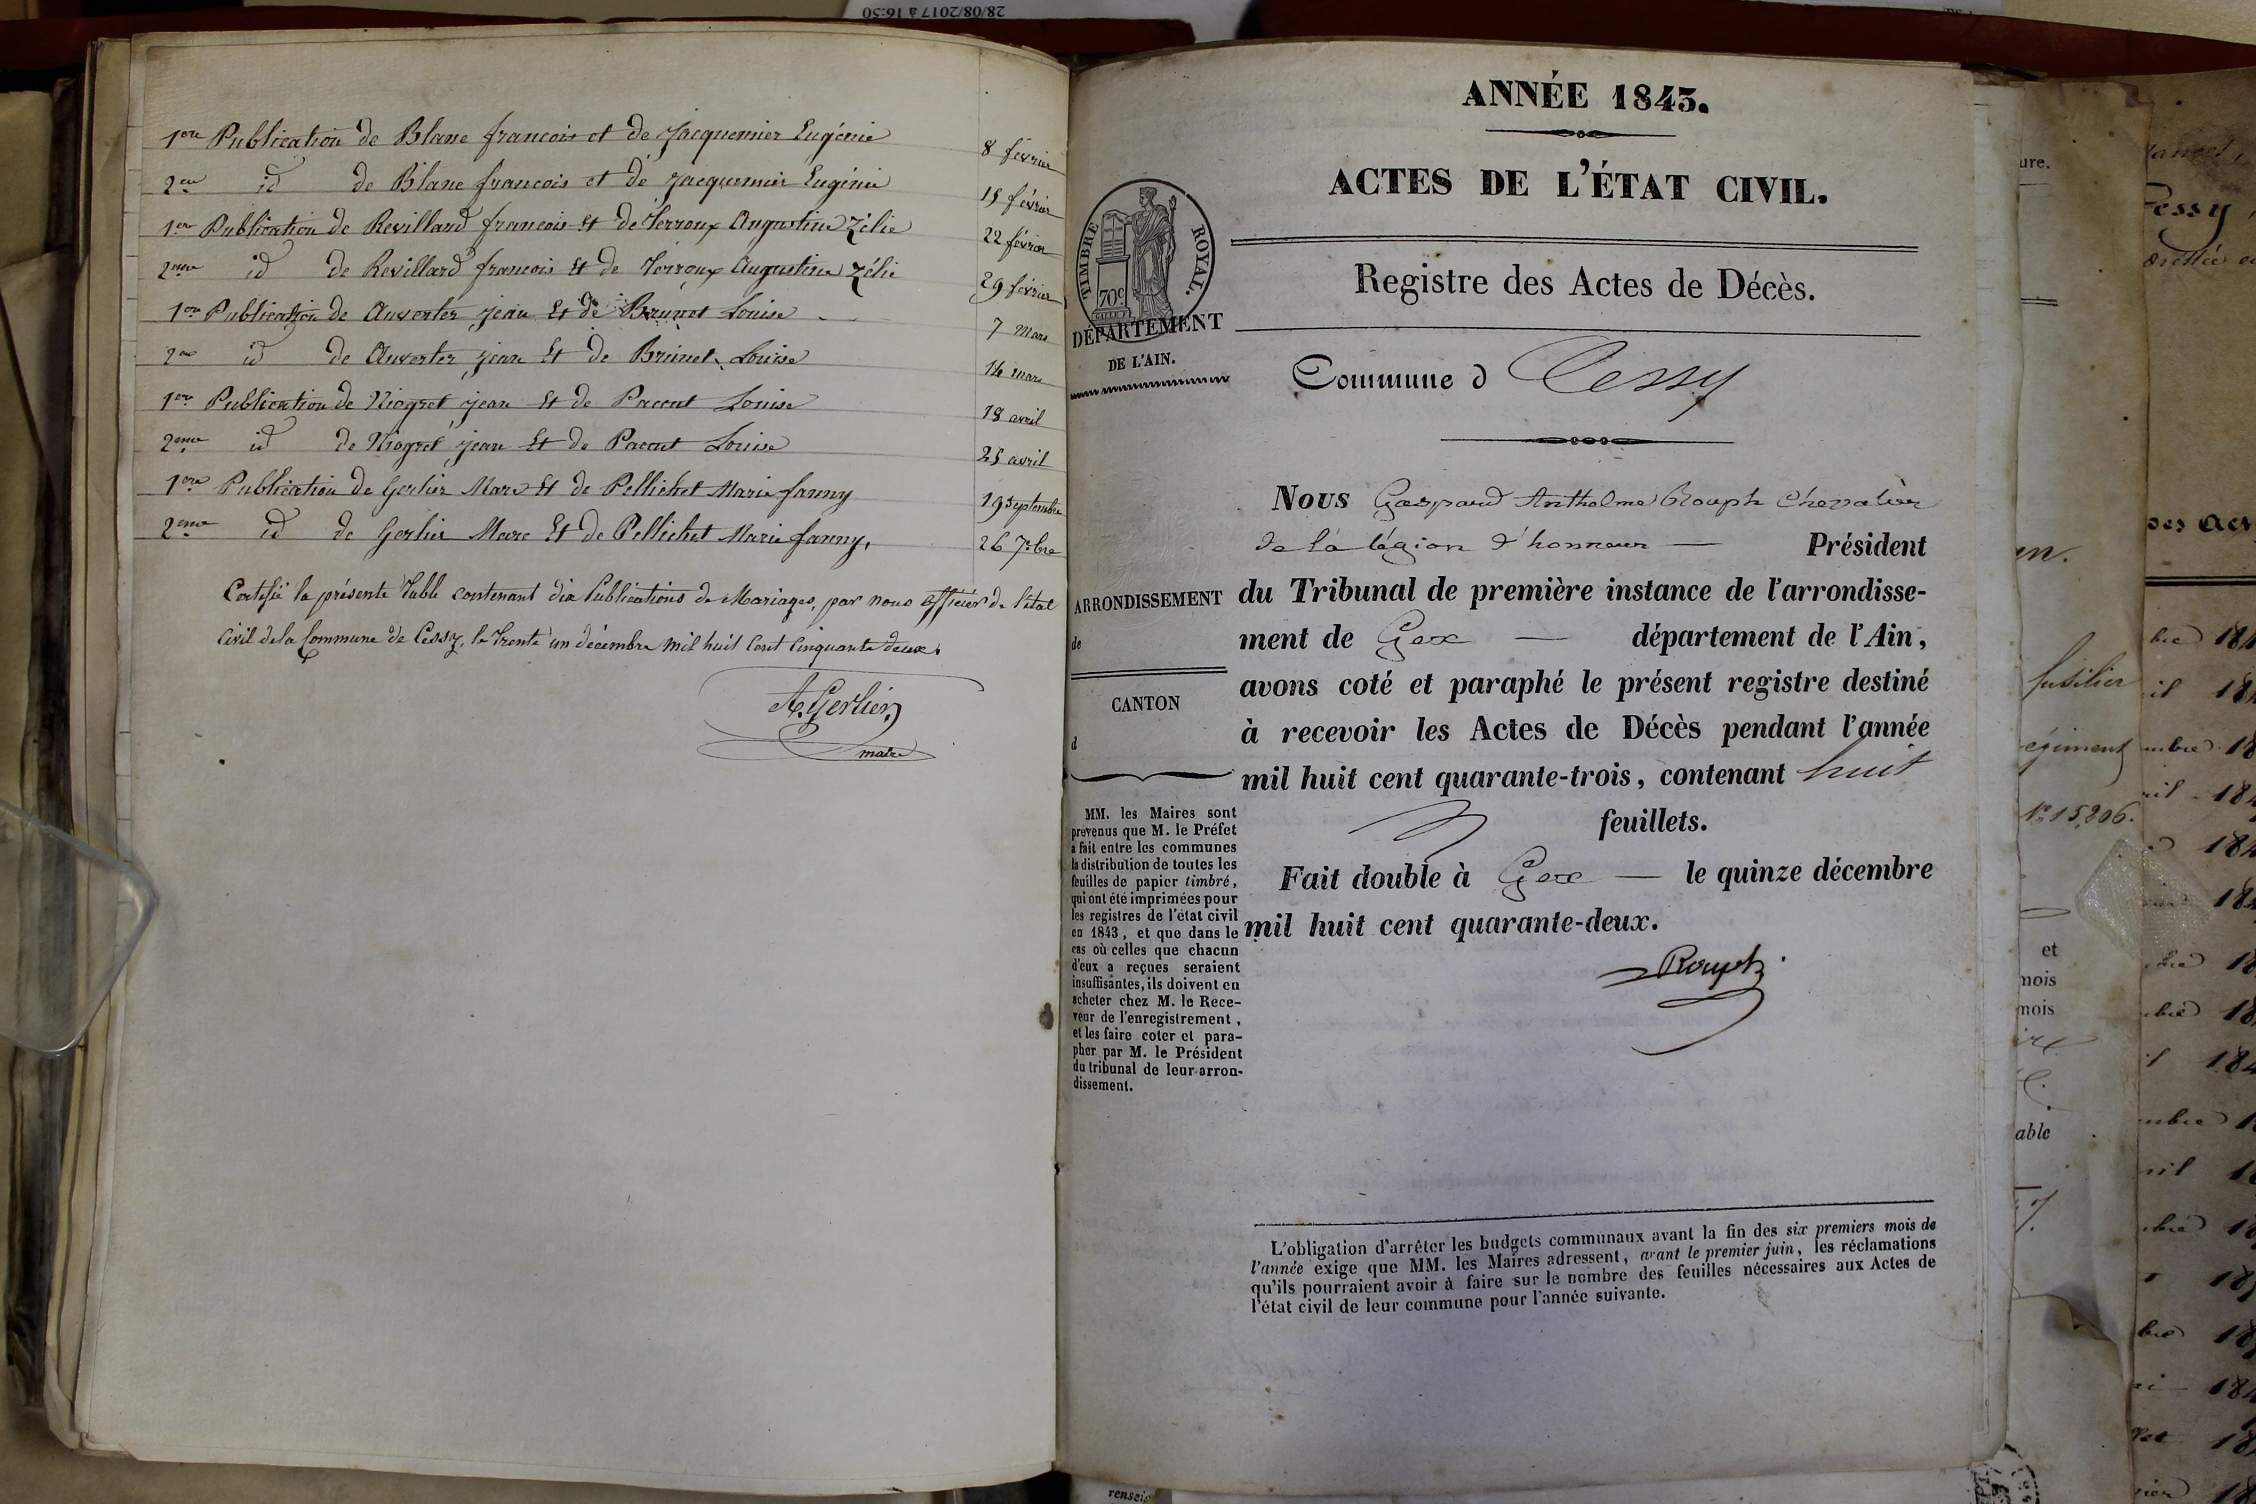 28/08/2017 à 16:50
1ere Publication de Blanc francois et de Jacquemier Eugénie 8 février
2eu id de Blanc francois et de Jacquemier Eugénie 15 février
1ere Publication de Revillard francois Et de Terroux Augustine Zélie 22 février
2eme id de Revillard francois Et de Terroux Augustine Zélie 29 février
1ere Publication de Auverter jean Et de Brunet Louise 7 mars
2me id de Auverter jean Et de Brunet Louise 14 mars
1ere Publication de Niogret jean Et de Paccut Louise 18 avril
2eme id de Niogret jean Et de Paccut Louise 25 avril
1ere Publication de Gerlier Marc Et de Pellichet Marie fanny 19 septembre
2eme id de Gerlier Marc Et de Pellichet Marie fanny, 26 7bre
Certifié la présente Table contenant dix Publications de Mariages, par nous officier de l'état
Civil de la Commune de Cessy, le trente un décembre mil huit Cent Cinquante deux.
A. Gerlier
maire
ANNÉE 1843.
ACTES DE L'ÉTAT CIVIL.
TIMBRE ROYAL.
70c
DÉPARTEMENT
DE L'AIN.
Registre des Actes de Décès.
Commune d Cessy
Nous Gaspard Anthelme Rouph Chevalier
de la légion d'honneur — Président
du Tribunal de première instance de l'arrondisse-
ment de Gex — département de l'Ain,
avons coté et paraphé le présent registre destiné
à recevoir les Actes de Décès pendant l'année
mil huit cent quarante-trois, contenant huit
feuillets.
Fait double à Gex — le quinze décembre
mil huit cent quarante-deux.
Rouph
ARRONDISSEMENT
de
CANTON
d
MM. les Maires sont
prévenus que M. le Préfet
a fait entre les communes
la distribution de toutes les
feuilles de papier timbré,
qui ont été imprimées pour
les registres de l'état civil
en 1843, et que dans le
cas où celles que chacun
d'eux a reçues seraient
insuffisantes, ils doivent en
acheter chez M. le Rece-
veur de l'enregistrement,
et les faire coter et para-
pher par M. le Président
du tribunal de leur arron-
dissement.
L'obligation d'arrêter les budgets communaux avant la fin des six premiers mois de
l'année exige que MM. les Maires adressent, avant le premier juin, les réclamations
qu'ils pourraient avoir à faire sur le nombre des feuilles nécessaires aux Actes de
l'état civil de leur commune pour l'année suivante.
ure.
fusilier
égiment
No 15,206.
et
mois
mois
able
essy